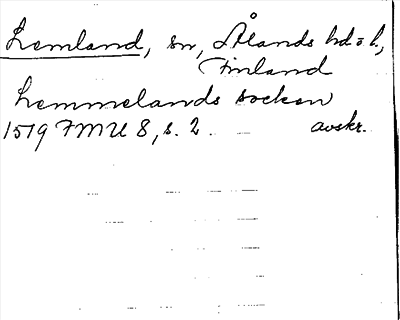 Lemland, sn, Ålands hd o l,
Finland
Lemmelands socken
1519 FMU 8, s. 2. avskr.